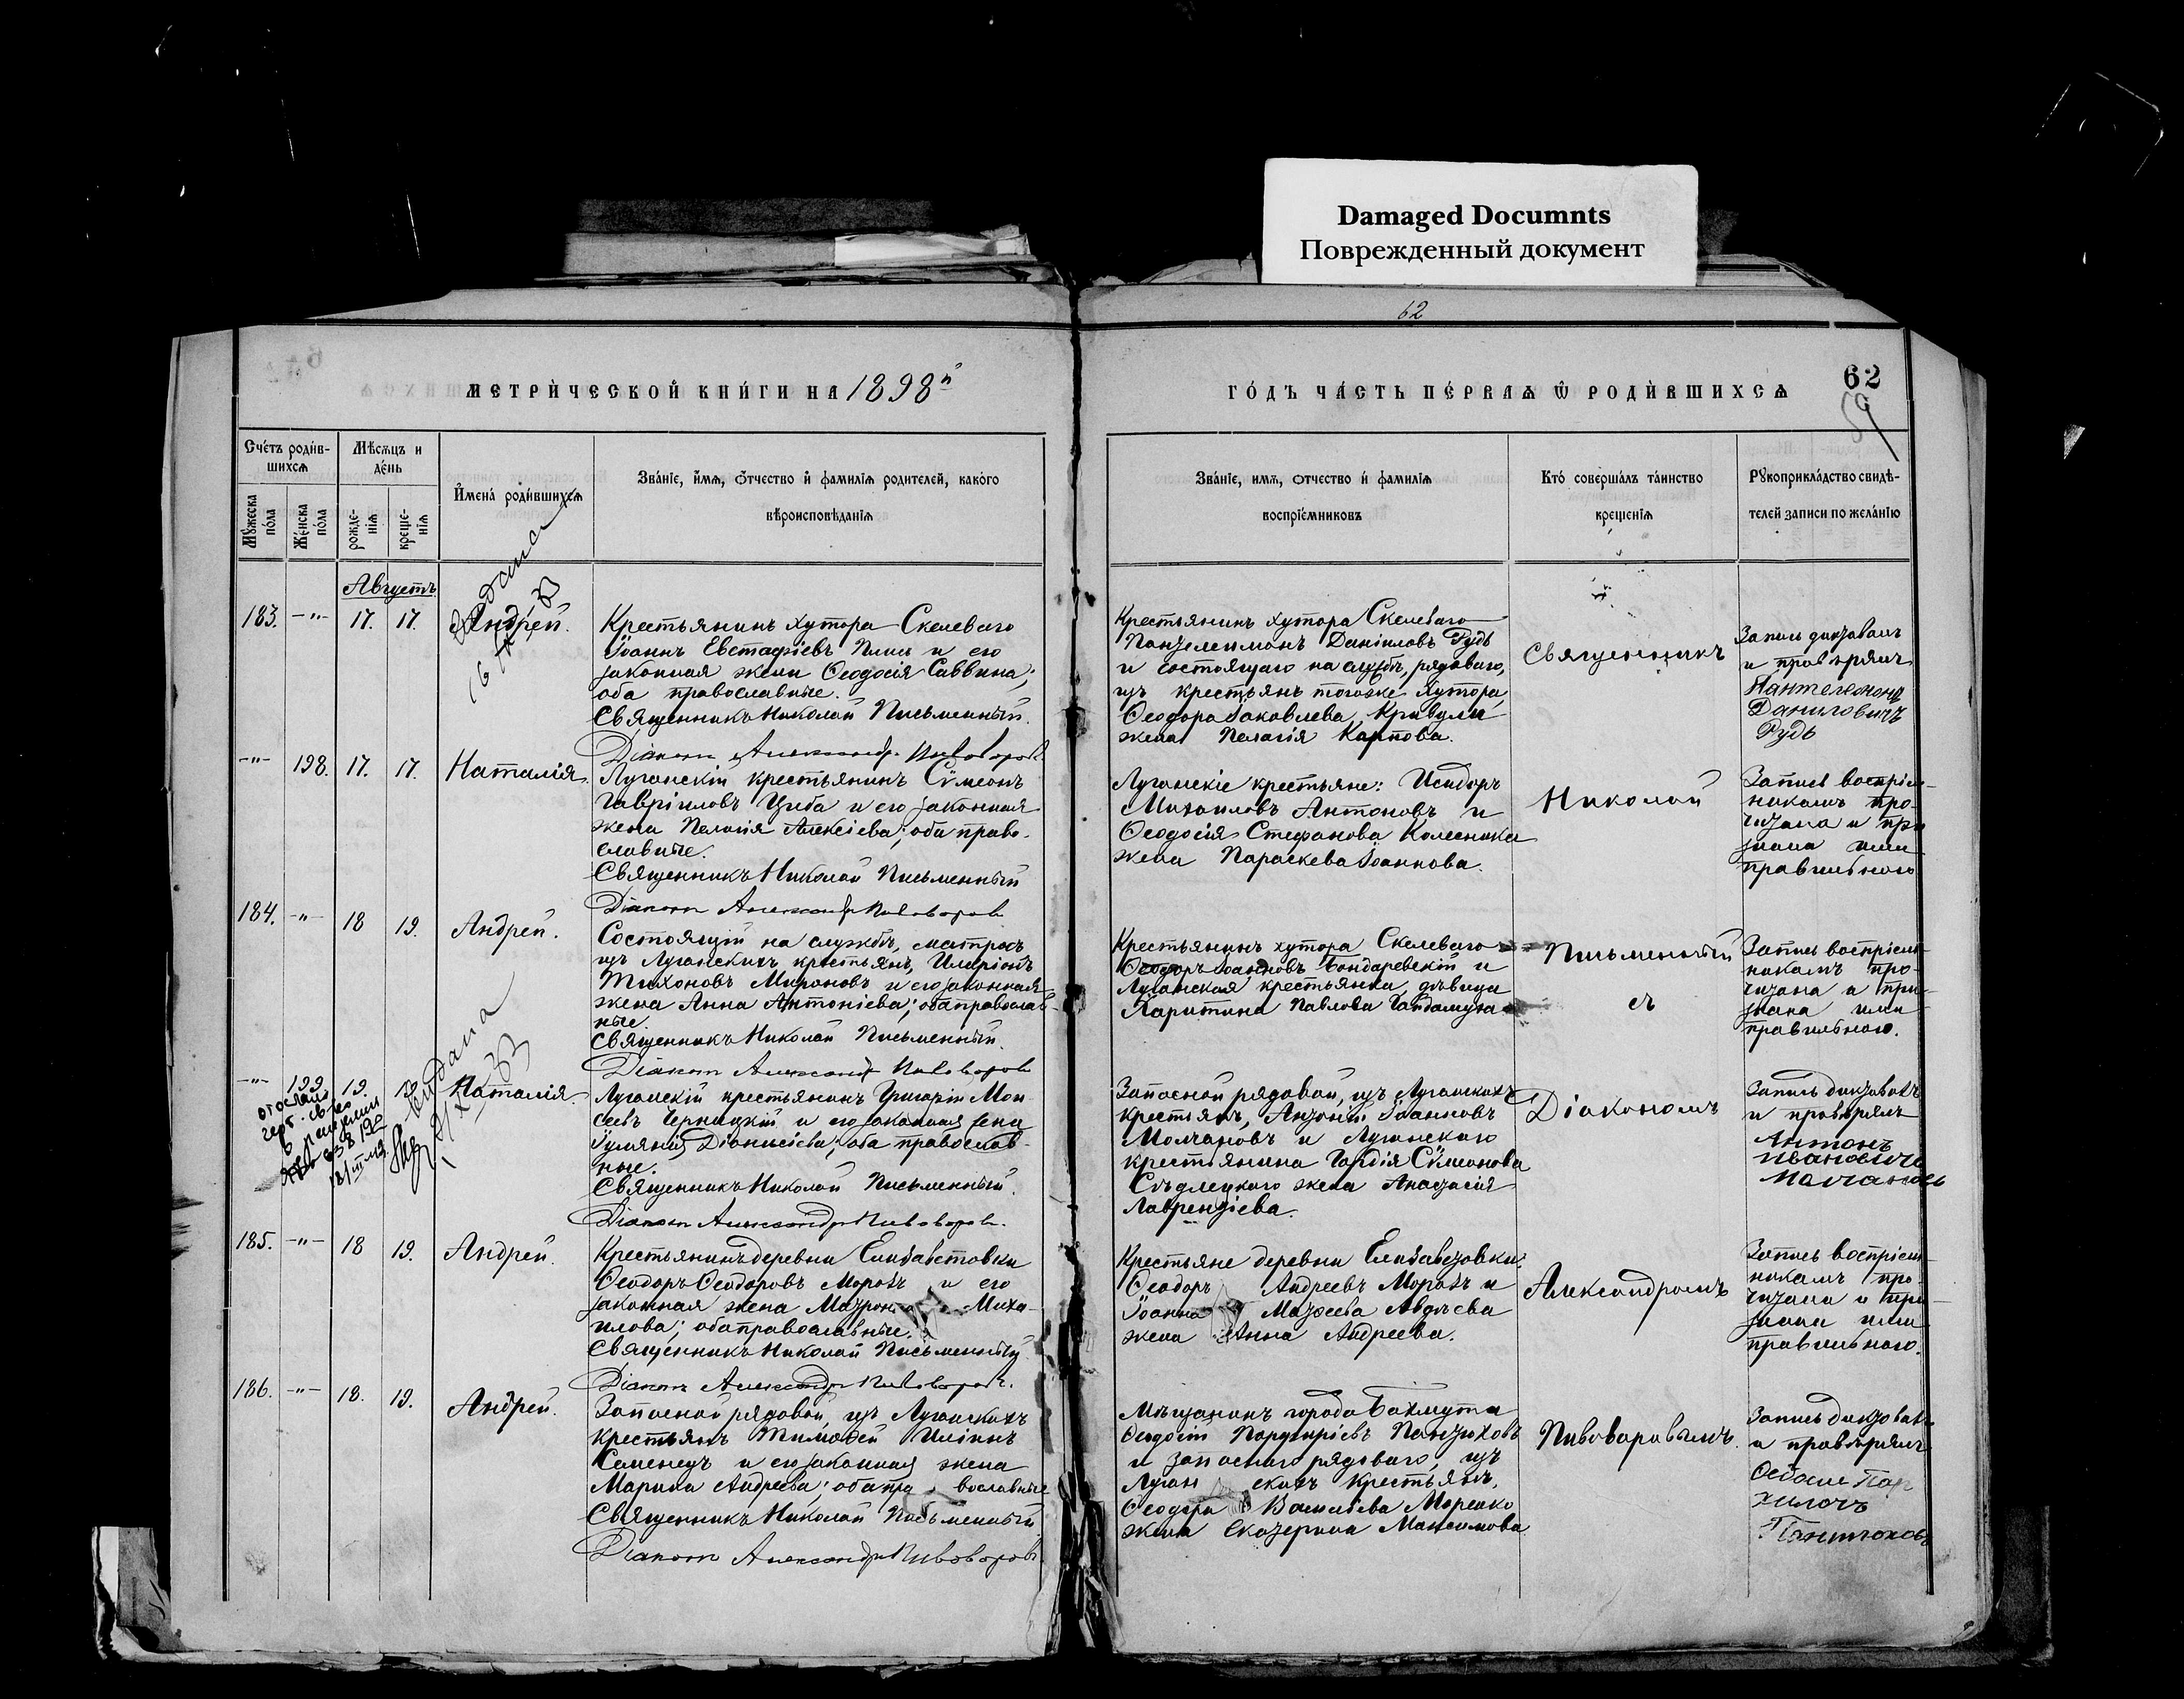 Damaged Documnts
Поврежденный документ
62
МЕТРИ́ЧЕСКОЙ КНИ́ГИ НА 1898 й
ГО́ДЪ ЧА́СТЬ ПЕ́РВАѦ Ѡ РОДИ́ВШИХСѦ
62
59
Сче́тъ роди́в-
шихсѧ
Мѣсѧцъ и
де́нь
Мꙋжеска по́ла
Же́нска по́ла
рожде-
нїѧ
креще-
нїѧ
И́мена́ роди́вшихсѧ
Зва́нїе, и́мѧ, ѻ́тчество и҆ фамилїѧ родителей, како́го
вѣроисповѣданїѧ
Зва́нїе, имѧ, ѻтчество и҆ фамилїѧ
воспрїе́мниковъ
Кто́ соверша́лъ та́инство
крещенїѧ
Рꙋкоприкла́дство свидѣ-
телей записи по жела́нїю
Августъ
183. -"- 17. 17. Андрей.
Крестьянинъ хутора Скелеваго
Іоаннъ Евстафіевъ Плис и его
законная жена Ѳеодосія Саввина;
оба православные.
Священникъ Николай Письменный.
Діаконъ Александръ Пивоваровъ
Крестьянинъ хутора Скелеваго
Пантелеимонъ Даніиловъ Рудь
и состоящаго на службѣ, рядоваго,
изъ крестьянъ тогоже хутора,
Ѳеодора Іаковлева Кривули
жена Пелагія Карпова.
Священникъ
Запись диктовалъ
и провѣрялъ
Пантелемонъ
Даниловичъ
Рудь
выдана
16
-"- 198. 17. 17. Наталія.
Луганскій крестьянинъ Сѵмеонъ
Гавріиловъ Циба и его законная
жена Пелагія Алексіева; оба право-
славные.
Священникъ Николай Письменный
Діаконъ Александръ Пивоваровъ
Луганскіе крестьяне: Исидоръ
Михаиловъ Антоновъ и
Ѳеодосія Стефанова Колесника
жена Параскева Іоаннова.
Николай
Запись воспріем-
никамъ про-
читана и при
знана ими
правильною
184. -"- 18 19. Андрей.
Состоящій на службѣ, матросъ
изъ Луганскихъ крестьянъ, Иларіонъ
Тихоновъ Мироновъ и его законная
жена Анна Антоніева; оба православ-
ные.
Священникъ Николай Письменный.
Діаконъ Александръ Пивоваровъ
Крестьянинъ хутора Скелеваго
Ѳеодоръ Іоанновъ Бондаревскій и
Луганская крестьянка, дѣвица
Харитина Павлова Гайдамука
Письменный
съ
Запись воспріем-
никамъ про-
читана и при-
знана ими
правильною.
-"- 199 19. 19. Наталія.
выдана
Луганскій крестьянинъ Григорій Мои
сеевъ Черницкій и его законная жена
Іуліанія Діонисіева; оба православ-
ные.
Священникъ Николай Письменный.
Діаконъ Александръ Пивоваровъ.
Запасной рядовой, изъ Луганскихъ
крестьянъ, Антоній Іоанновъ
Молчановъ и Луганскаго
крестьянина Гордія Сѵмеонова
Сѣдлецкаго жена Анастасія
Лаврентіева.
Діакономъ
Запись диктовалъ
и провѣрялъ
Антонъ
Ивановичъ
Молчановъ
185. -"- 18 19. Андрей.
Крестьянинъ деревни Елизаветовки
Ѳеодоръ Ѳеодоровъ Морозъ и его
законная жена Матрона Миха-
илова; оба православные.
Священникъ Николай Письменный.
Діаконъ Александръ Пивоваровъ.
Крестьяне деревни Елизаветовки:
Ѳеодоръ Андреевъ Морозъ и
Іоанна Матѳеева Авдѣева
жена Анна Андреева.
Александромъ
Запись воспріем-
никамъ про-
читана и при-
знана ими
правильною.
186. -"- 18. 19. Андрей.
Запасной рядовой, изъ Луганскихъ
крестьянъ Тимоѳей Иліинъ
Семенецъ и его законная жена
Марина Андреева; оба пра вославные
Священникъ Николай Письменный
Діаконъ Александръ Пивоваровъ
Мѣщанинъ города Бахмута
Ѳеодосій Порфиріевъ Пантюховъ
и запаснаго рядоваго, изъ
Луган скихъ крестьянъ,
Ѳеодора Васильева Марченко
жена Екатерина Максимова
Пивоваровымъ.
Запись диктовалъ
и провѣрялъ
Пантюховъ